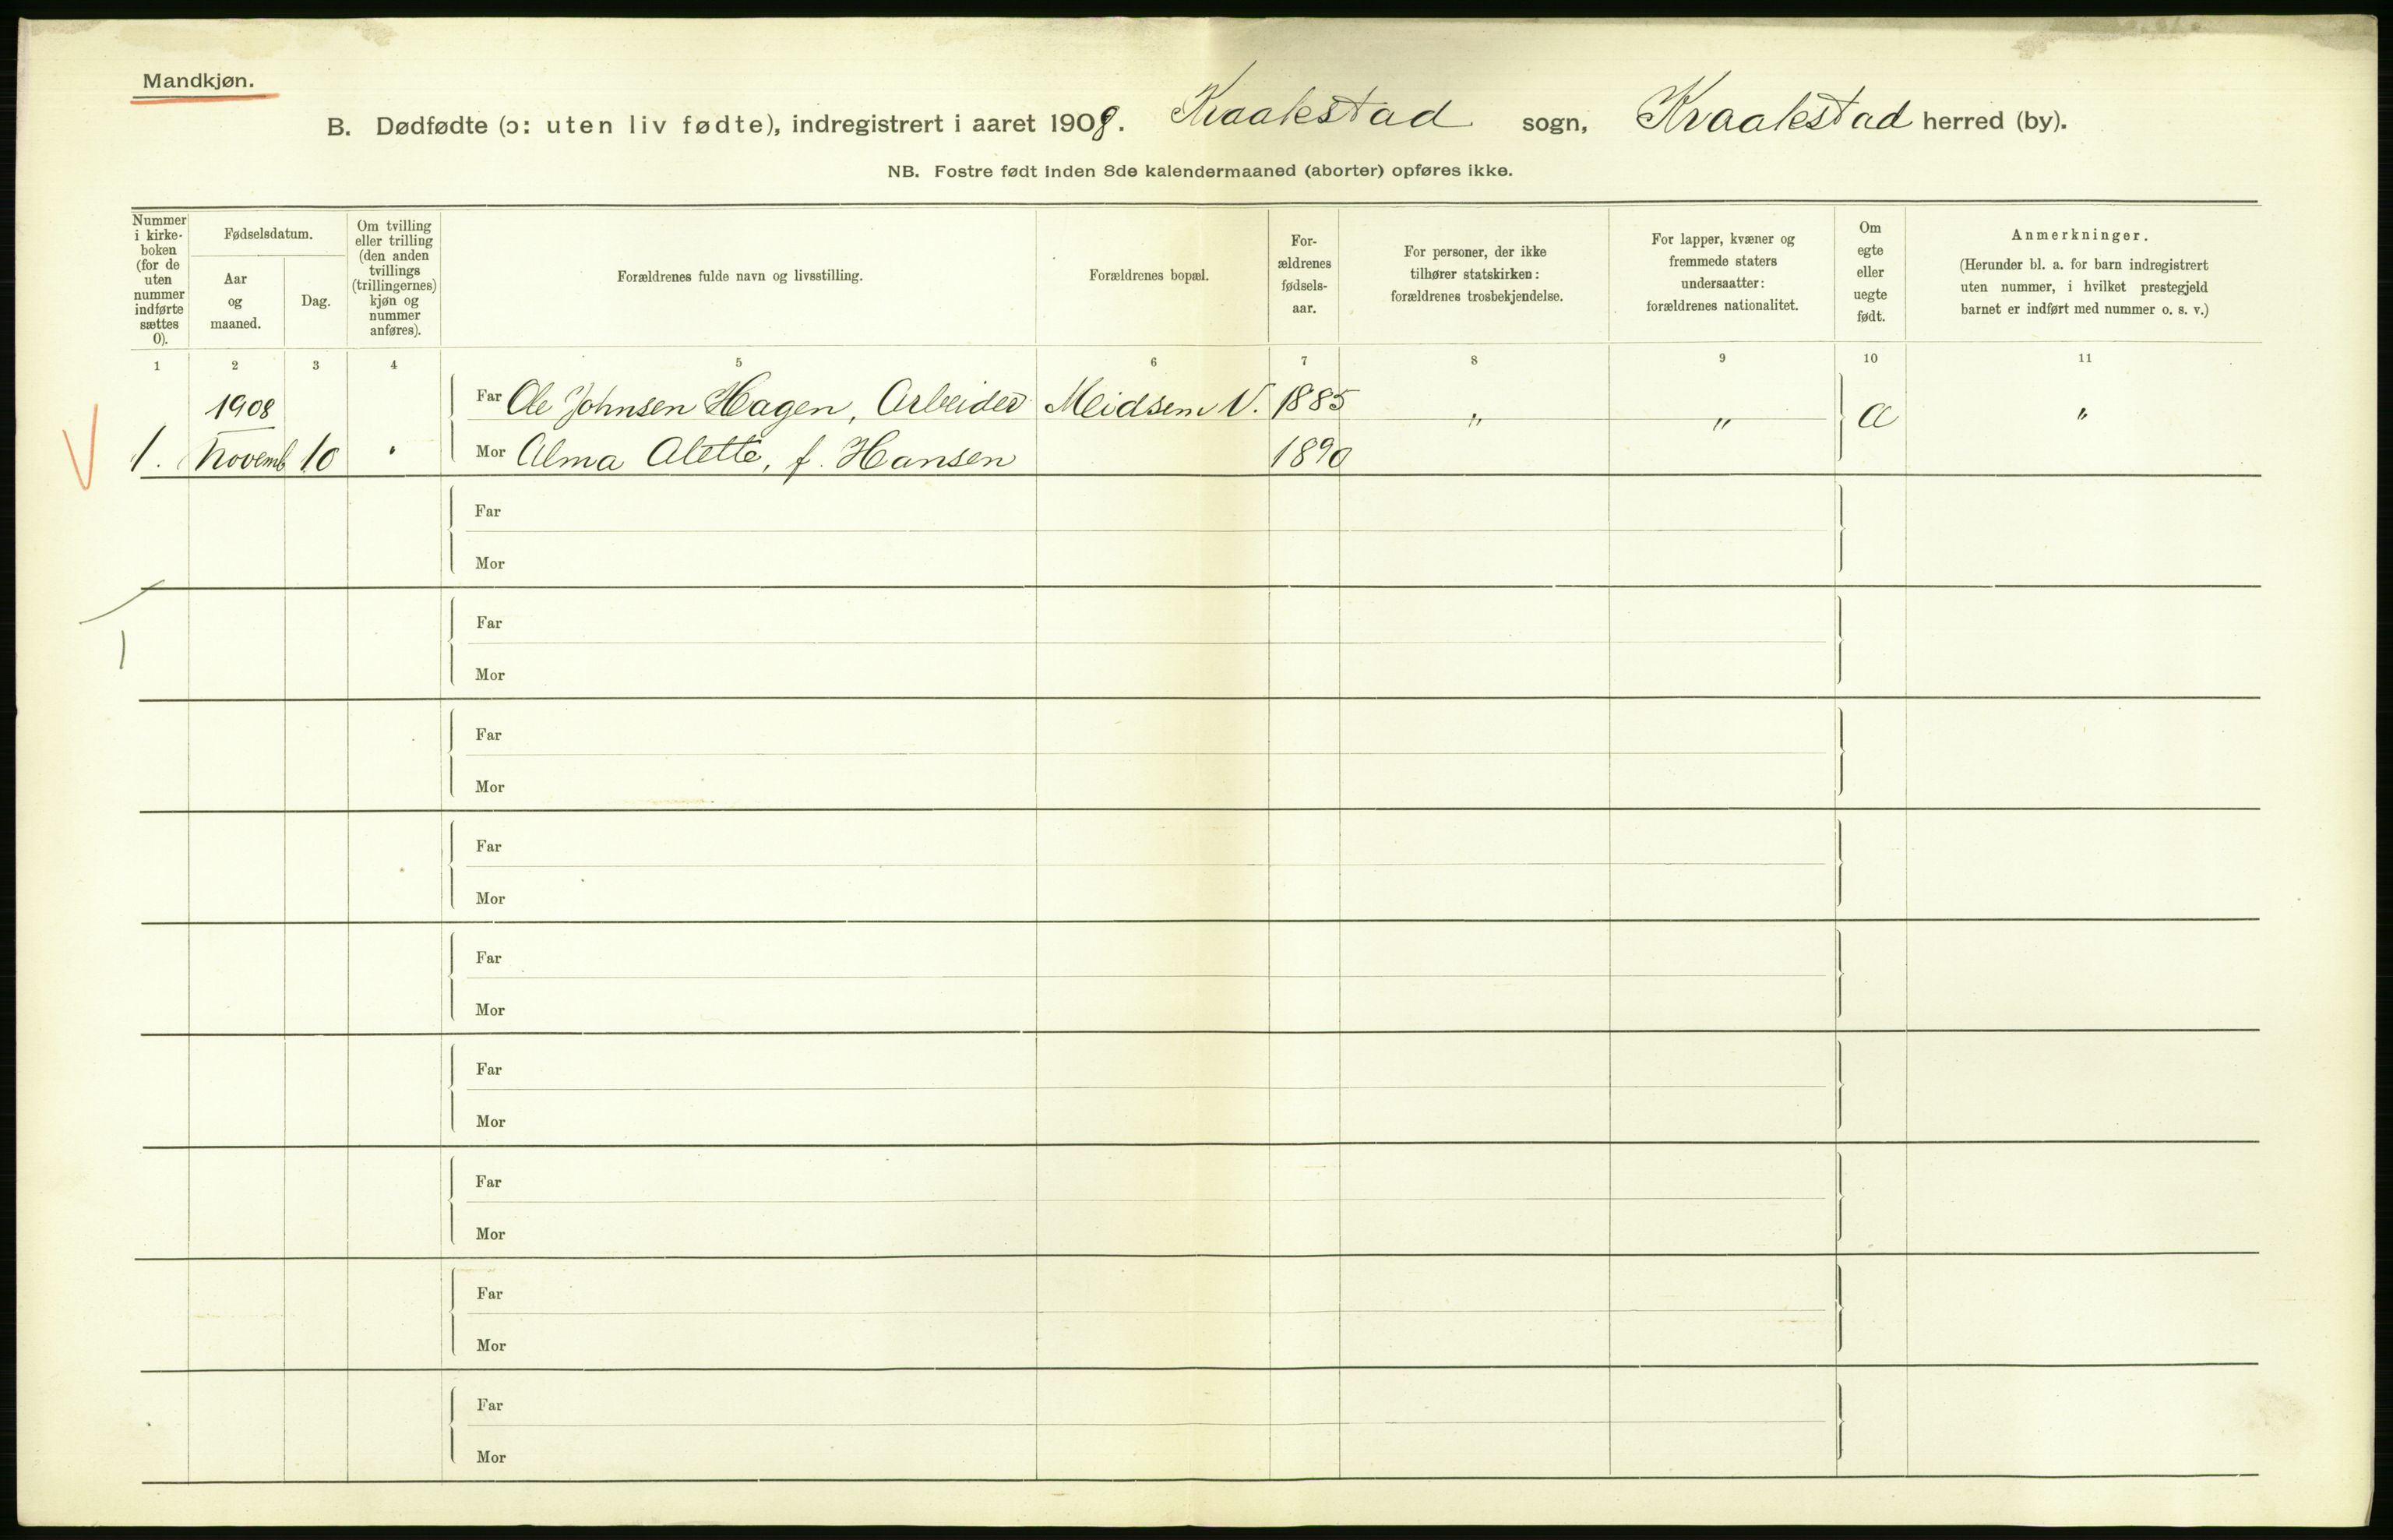 Mandkjøn.
B. Dødfødte (ɔ: uten liv fødte), indregistrert i aaret 1908. Kraakstad sogn, Kraakstad herred (by).
NB. Fostre født inden 8de kalendermaaned (aborter) opføres ikke.
Nummer
i kirke-
boken
(for de
uten
nummer
indførte
sættes
0).
Fødselsdatum.
Aar
og
maaned.
Dag.
Om tvilling
eller trilling
(den anden
tvillings
(trillingernes)
kjøn og
nummer
anføres).
Forældrenes fulde navn og livsstilling.
Forældrenes bopæl.
For-
ældrenes
fødsels-
aar.
For personer, der ikke
tilhører statskirken:
forældrenes trosbekjendelse.
For lapper, kvæner og
fremmede staters
undersaatter:
forældrenes nationalitet.
Om
egte
eller
uegte
født.
Anmerkninger.
(Herunder bl. a. for barn indregistrert
uten nummer, i hvilket prestegjeld
barnet er indført med nummer o. s. v.)
1 2 3 4 5 6 7 8 9 10 11
1908 Far Ole Johnsen Hagen, Arbeider Meidsem V. 1885 " " a "
1. Novemb 10 " Mor Alma Alette, f. Hansen 1890
Far
Mor
Far
Mor
Far
Mor
Far
Mor
Far
Mor
Far
Mor
Far
Mor
Far
Mor
Far
Mor